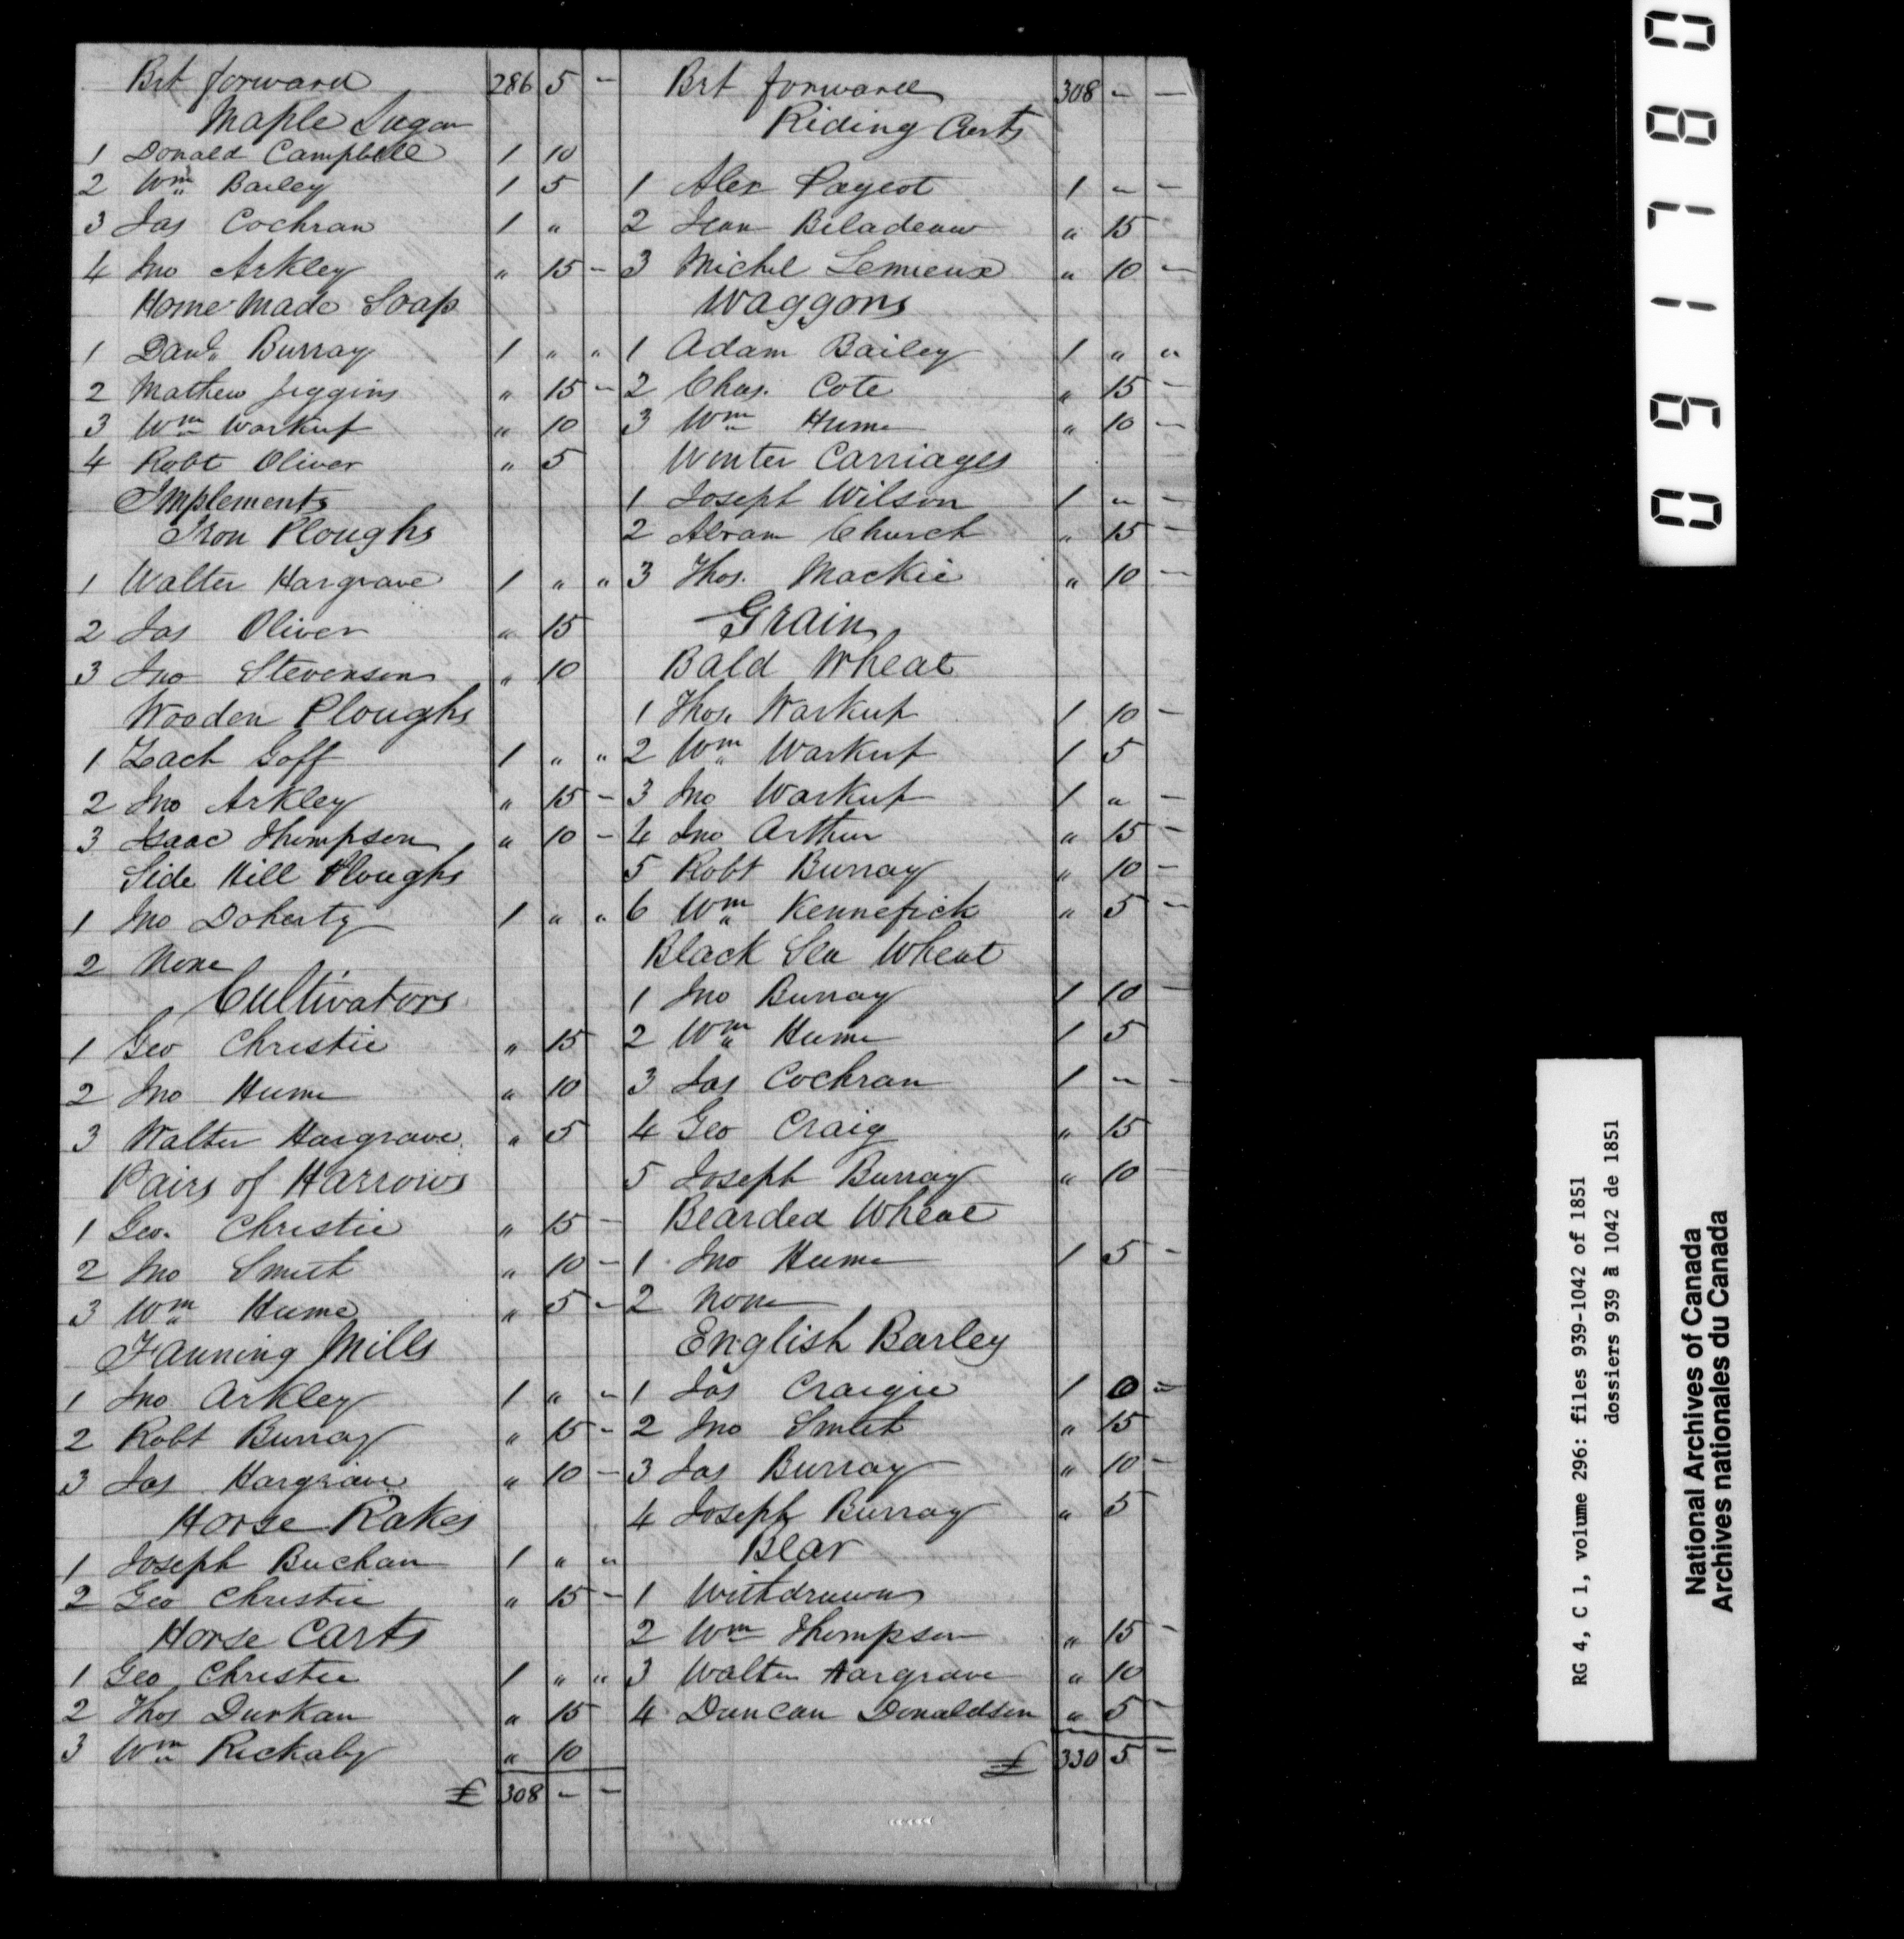 Brt forward 286 5 -
Maple Sugar
1 Donald Campbell 1 10
2 Wm Bailey 1 5
3 Jas Cochran 1 "
4 Jno Arkley " 15 -
Home Made Soap
1 Danl. Burray 1 " "
2 Mathew Jiggins " 15 -
3 Wm Warkup " 10
4 Robt Oliver " 5
Implements
Iron Ploughs
1 Walter Hargrave 1 " "
2 Jas Oliver " 15
3 Jno Stevenson " 10
Wooden Ploughs
1 Zach Goff 1 " "
2 Jno Arkley " 15 -
3 Isaac Thompson " 10 -
Side Hill Ploughs
1 Jno Doherty 1 " "
2 None
Cultivators
1 Geo Christie " 15
2 Jno Hume " 10
3 Walter Hargrave " 5
Pairs of Harrows
1 Geo. Christie " 15 -
2 Jno Smith " 10 -
3 Wm Hume " 5 -
Fanning Mills
1 Jno Arkley 1 " "
2 Robt Burray " 15 -
3 Jas Hargrave " 10 -
Horse Rakes
1 Joseph Buchan 1 " "
2 Geo Christie " 15 -
Horse Carts
1 Geo Christie 1 " "
2 Thos Durkan " 15
3 Wm Rickaby " 10
£ 308 - -
Brt forward 308 - -
Riding Carts
1 Alex Pageot 1 " -
2 Jean Beladeau " 15
3 Michel Lemieux " 10 -
Waggons
1 Adam Bailey 1 " "
2 Chas. Cote " 15 -
3 Wm Hume " 10 -
Winter Carriages
1 Joseph Wilson 1 " -
2 Abram Church " 15 -
3 Thos. Mackie " 10 -
Grain
Bald Wheat
1 Thos. Warkup 1 10 -
2 Wm Warkup 1 5
3 Jno Warkup 1 " -
4 Jno Arthur " 15 -
5 Robt Burray " 10 -
6 Wm Kennefick " 5 -
Black Sea Wheat
1 Jno Burray 1 10 -
2 Wm Hume 1 5
3 Jas Cochran 1 " -
4 Geo Craig " 15
5 Joseph Burray " 10 -
Bearded Wheat
1 Jno Hume 1 5 -
2 None
English Barley
1 Jas Craigie 1 0 -
2 Jno Smith " 15
3 Jas Burray " 10 -
4 Joseph Burray " 5
Bear
1 Withdrawn
2 Wm Thompson " 15 -
3 Walter Hargrave " 10
4 Duncan Donaldson " 5 -
£ 330 5 -
091780
RG 4, C 1, volume 296: files 939-1042 of 1851
dossiers 939 à 1042 de 1851
National Archives of Canada
Archives nationales du Canada